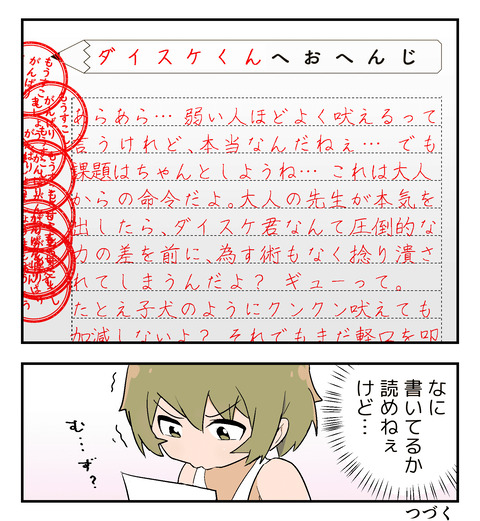 ダイスケくんへおへんじ
あらあら… 弱い人ほどよく吠えるって
言うけれど、本当なんだねぇ… でも
課題はちゃんとしようね… これは大人
からの命令だよ。大人の先生が本気を
出したら、ダイスケ君なんて圧倒的な
力の差を前に、為す術もなく捻り潰さ
れてしまうんだよ? ギューって。
たとえ子犬のようにクンクン吠えても
加減しないよ? それでもまだ軽口を叩
もうすこし
がんばり
なに
書いてるか
読めねぇ
けど…
む…
ず?
つづく